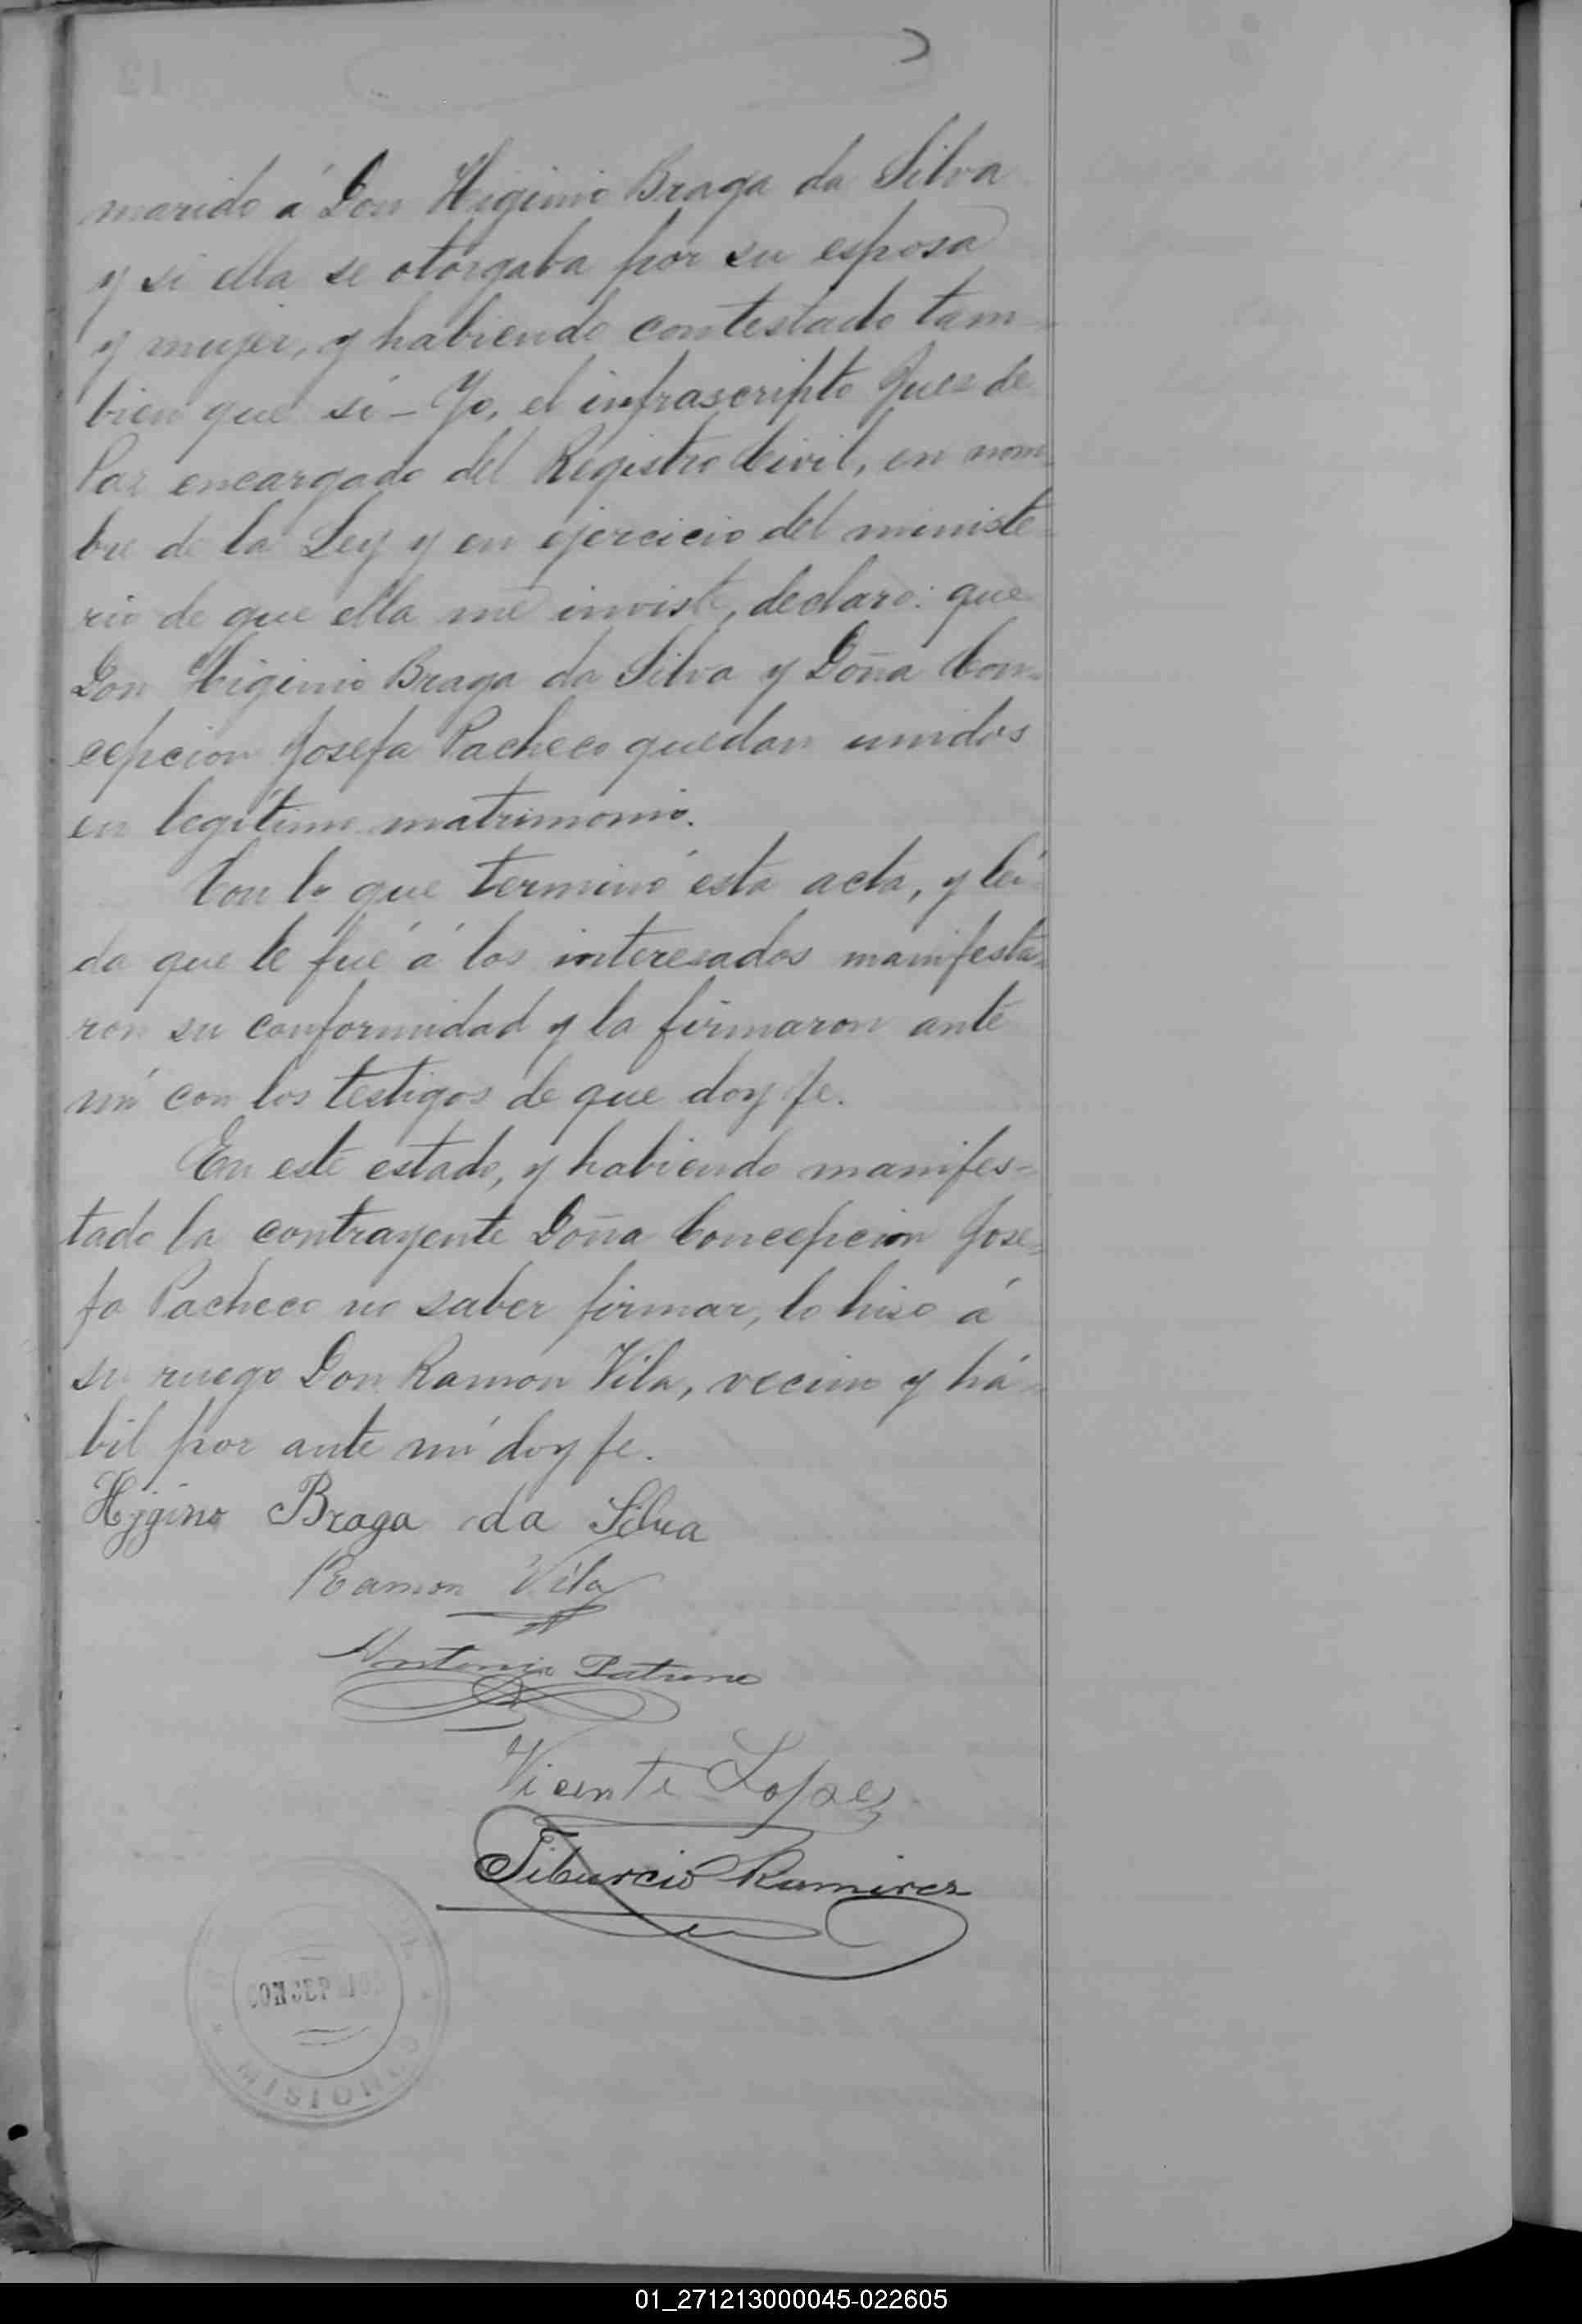 marido á Don Higinio Braga da Silva
y si ella se otorgaba por su esposa
y mujer, y habiendo contestado tam-
bien que si - Yo, el infrascripto Juez de
Paz encargado del Registro Civil, en nom-
bre de la Ley y en ejercicio del ministe-
rio de que ella me inviste, declaro: que
Don Higinio Braga da Silva y Doña Con-
cepcion Josefa Pacheco quedan unidos
en legítimo matrimonio.
Con lo que terminó esta acta, y leí-
da que le fué á los interesados manifesta-
ron su conformidad y la firmaron ante
mí con los testigos de que doy fe.
En este estado, y habiendo manifes-
tado la contrayente Doña Concepcion Jose-
fa Pacheco no saber firmar, lo hiso á
su ruego Don Ramón Vila, vecino y há-
bil por ante mí doy fe.
Hygino Braga da Silva
Ramon Vila
Antonio Patrono
Vicente Lopez
Tiburcio Ramirez
CONCEPCION
MISIONES
01_271213000045-022605